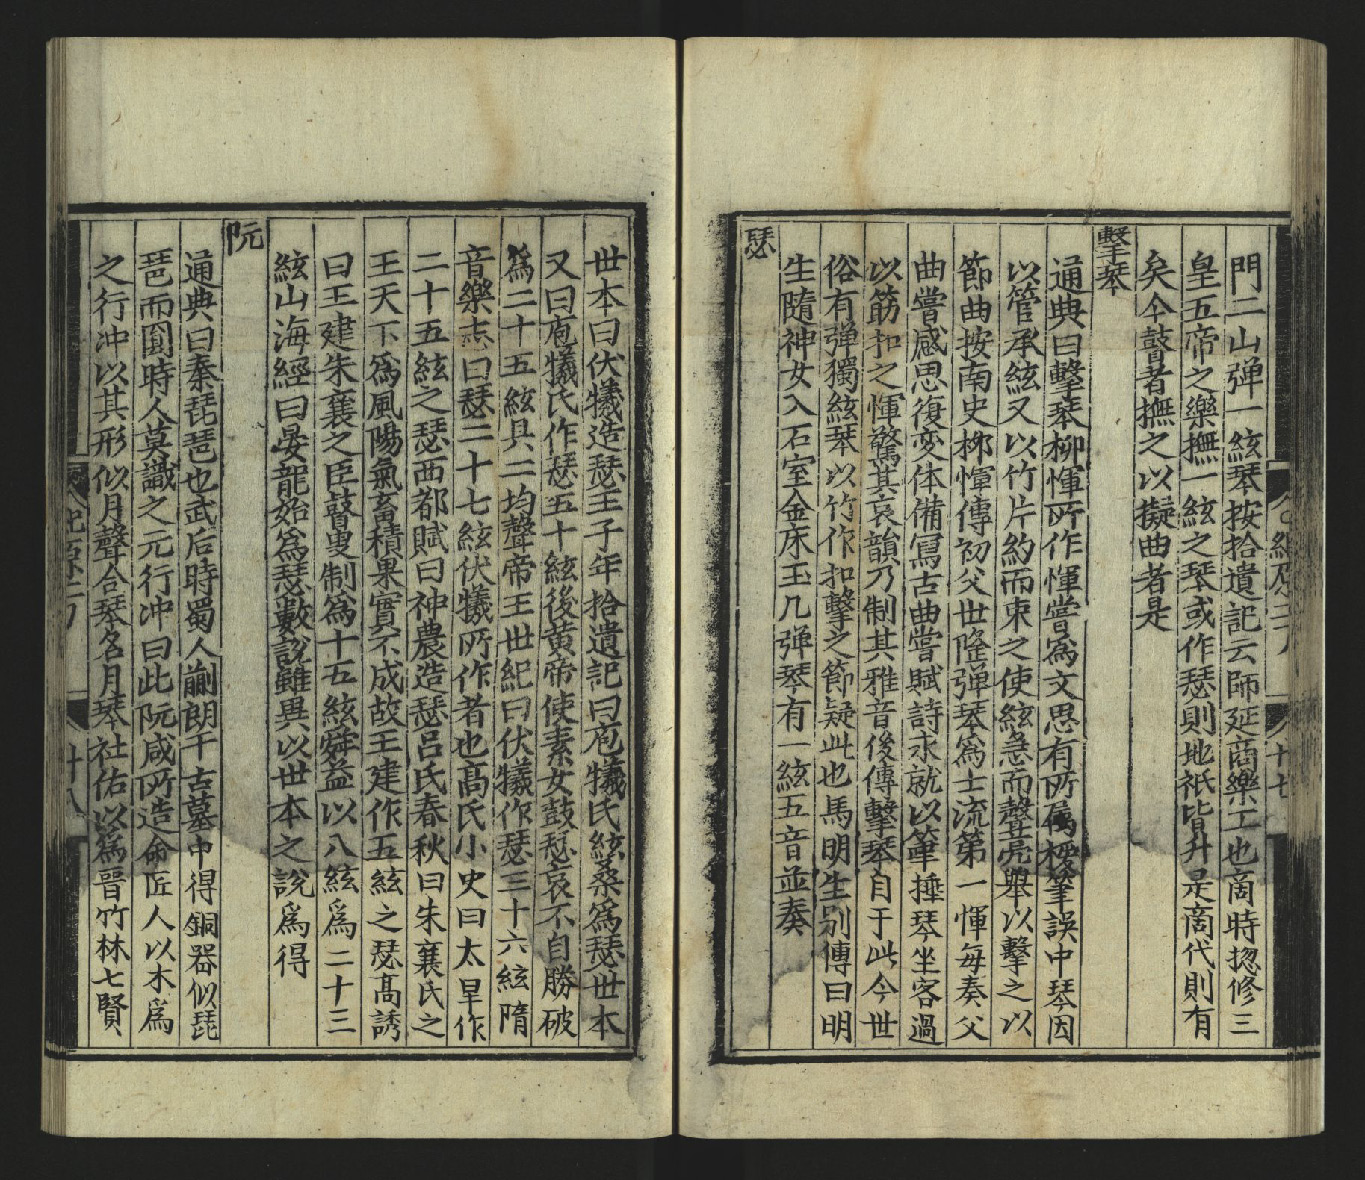 門二山弹一絃琴按拾遺記云師延商樂工也商時揔修三
皇五帝之樂撫一絃之琴或作瑟則地祇皆升是商代則有
矣今瞽者撫之以擬曲者是
擊琴
通典曰擊琴柳惲所作惲嘗爲文思有所屬櫌筆誤中琴因
以管承絃又以竹片約而束之使絃急而聲亮舉以擊之以
節曲按南史栁惲傳初父世隆弹琴爲士流第一惲每奏父
曲嘗感思復变体備寫古曲嘗賦詩未就以筆捶琴坐客過
以筋扣之惲驚其哀韻乃制其雅音後傳擊琴自于此今世
俗有弹獨絃琴以竹作扣擊之節疑此也馬明生别傳曰明
生隨神女入石室金床玉几弹琴有一絃五音並奏
瑟
世本曰伏犧造瑟王子年拾遺記曰庖犧氏絃桑爲瑟世本
又曰庖犧氏作瑟五十絃後黄帝使素女鼓瑟哀不自勝破
爲二十五絃具二均聲帝王世紀曰伏犧作瑟三十六絃隋
音樂志曰瑟二十七絃伏犧所作者也高氏小史曰太昊作
二十五絃之瑟西都賦曰神農造瑟吕氏春秋曰朱襄氏之
王天下爲風陽氣畜積果實不成故王建作五絃之瑟高誘
曰王建朱襄之臣瞽叟制爲十五絃舜益以八絃爲二十三
絃山海經曰晏龍始爲瑟數說雖異以世本之說爲得
阮
通典曰秦琵琶也武后時蜀人蒯朗于古墓中得銅器似琵
琶而圎時人莫識之元行冲曰此阮咸所造命匠人以木爲
之行冲以其形似月聲合琴名月琴杜佑以爲晉竹林七賢
十八